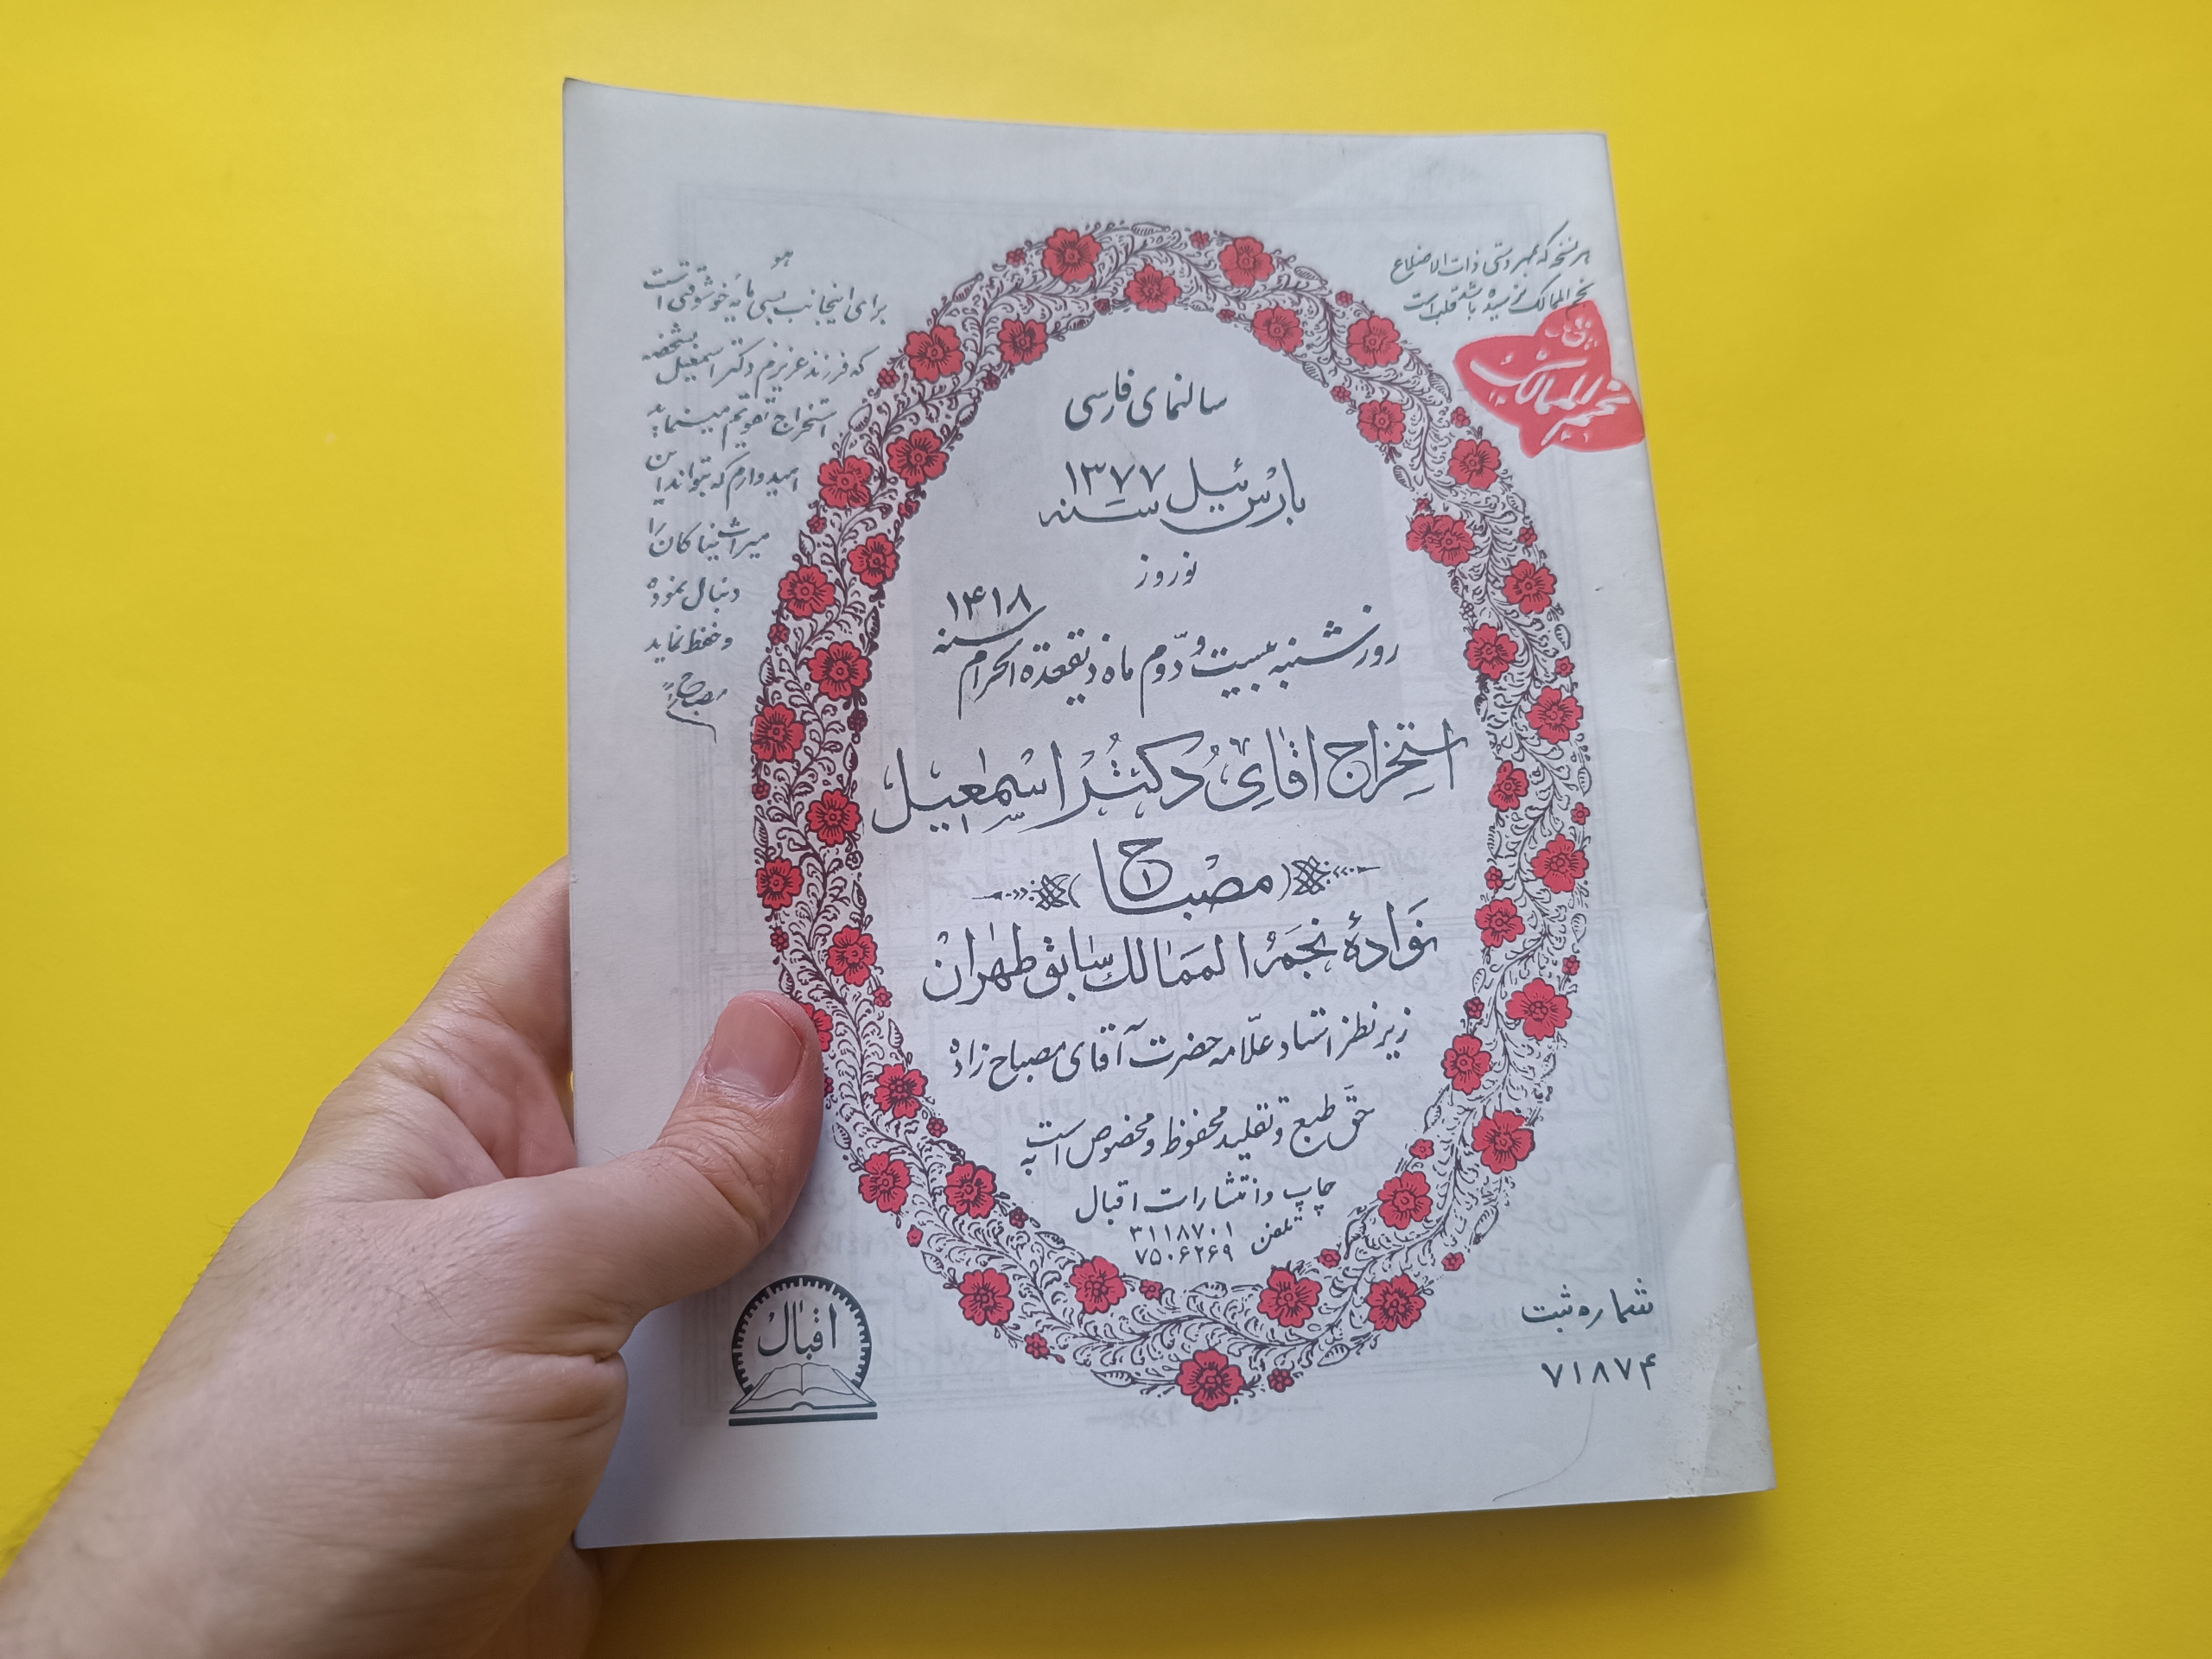 هر نسخه که بمهر دستی ذات الاضلاع
نجم الممالک نرسیده باشد تقلب است
نجم الممالک
سالنمای فارسی
بارس ئیل سنه ۱۳۷۷
نوروز
روز شنبه بیست و دوم ماه ذیقعدة الحرام سنه ۱۴۱۸
استخراج اقای دکتر اسمعیل
(مصباح)
نوادهٔ نجم الممالک سابق طهران
زیر نظر استاد علّامه حضرت آقای مصباح زاده
حق طبع و تقلید محفوظ و مخصوص است به
چاپ و انتشارات اقبال
تلفن ۳۱۱۸۷۰۱
۷۵۰۶۲۶۹
هو
برای اینجانب بسی مایه خوشوقتی است
که فرزند عزیزم دکتر اسمعیل بشخصه
استخراج تقویم مینماید
امیدوارم که بتواند این
میراث نیاکان را
دنبال نموده
و حفظ نماید
مصباح
اقبال
شماره ثبت
۷۱۸۷۴